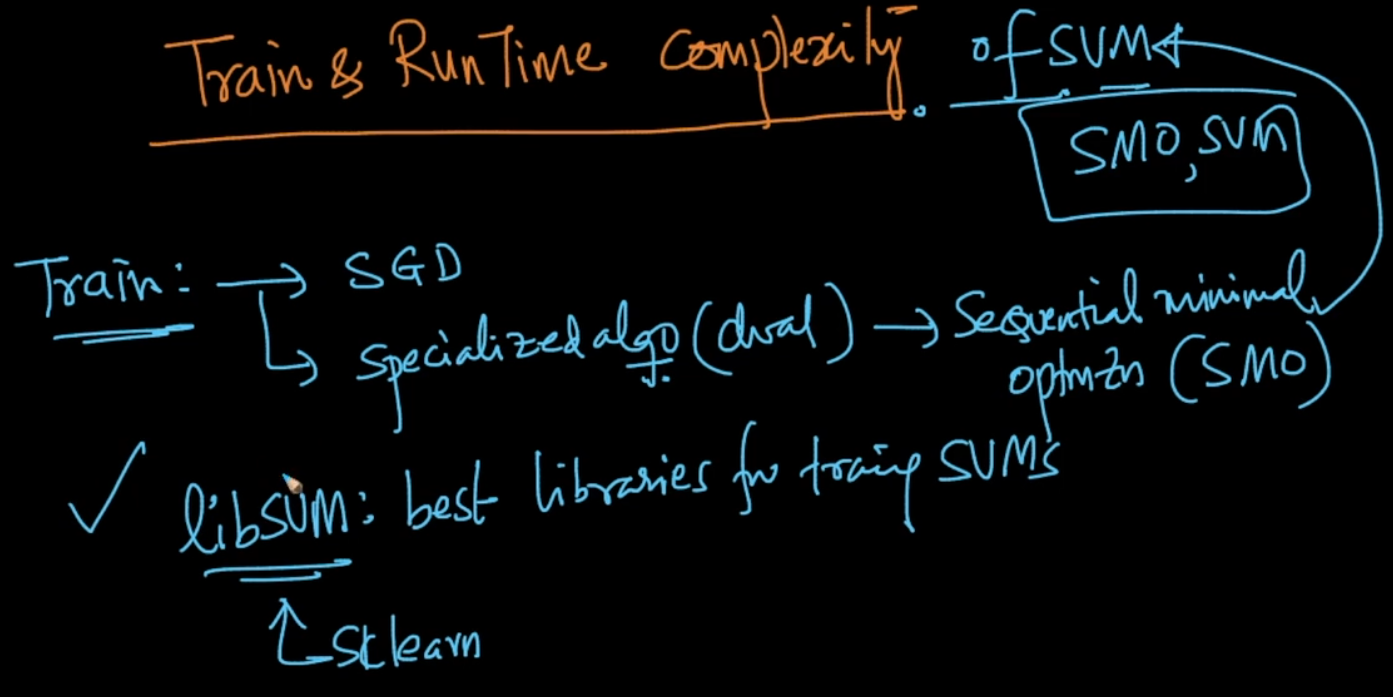 Train & Run Time Complexity of SVM
SMO, SVM
Train: → SGD
↳ specialized algo (dual) → Sequential minimal
optmzn (SMO)
✓ libSVM: best libraries for traing SVM's
↑ Sklearn